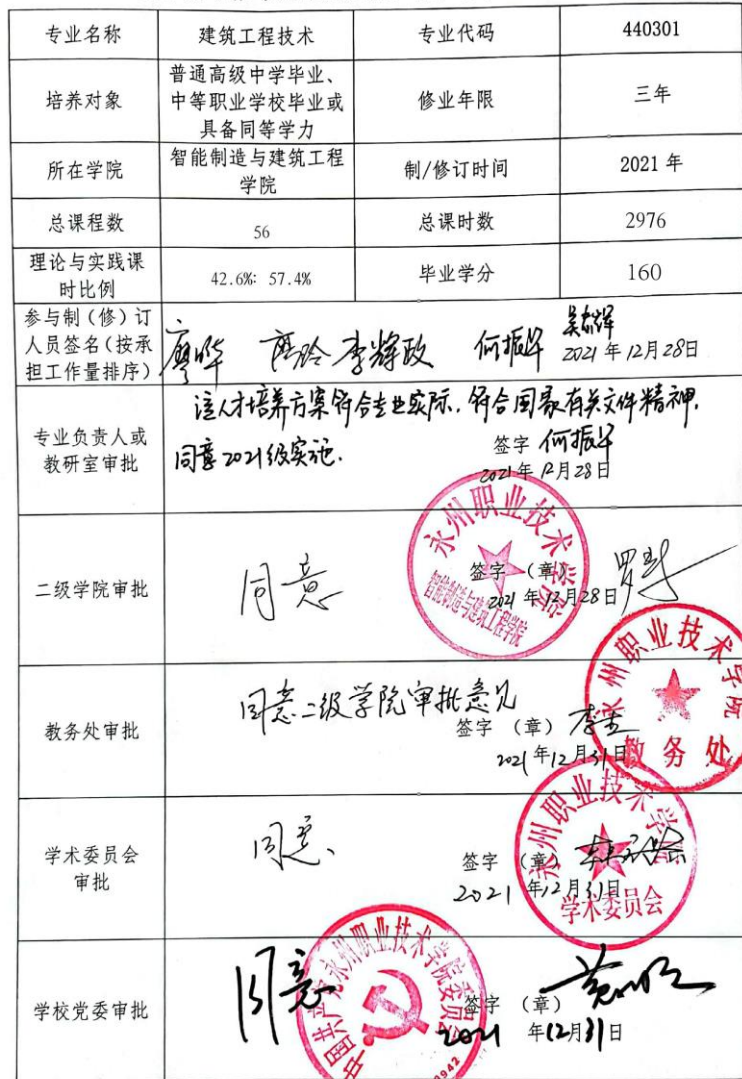 专业名称 建筑工程技术 专业代码 440301
培养对象 普通高级中学毕业、 修业年限 三年
中等职业学校毕业或
具备同等学力
所在学院 智能制造与建筑工程 制/修订时间 2021 年
学院
总课程数 56 总课时数 2976
理论与实践课 42.6%: 57.4% 毕业学分 160
时比例
参与制（修）订
人员签名（按承
担工作量排序）
廖晔 李辉政 何振华
2021 年 12月 28日
专业负责人或
教研室审批
该人才培养方案符合专业实际，符合国家有关文件精神，
同意2021级实施.
签字 何振华
2021年 12月28日
二级学院审批
同意
签字 （章）
2021 年12月28日
永州职业技术学院
智能制造与建筑工程学院
教务处审批
同意二级学院审批意见
签字 （章）
2021 年12月31日
永州职业技术学院
教务处
学术委员会
审批
同意、
签字 （章）
2021 年12月31日
永州职业技术学院
学术委员会
学校党委审批
同意
签字 （章）
2021 年12月31日
中国共产党永州职业技术学院委员会